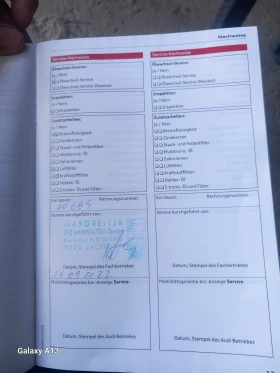 Nachweise
Service-Nachweise
Ölwechsel-Service:
Ja / Nein
Ölwechsel-Service
Ölwechsel-Service (flexibel)
Inspektion:
Ja / Nein
Inspektion
Zusatzarbeiten:
Bremsflüssigkeit
Zündkerzen
Staub- und Pollenfilter
Multitronic: Öl
Zahnriemen
Luftfilter
Kraftstofffilter
Haldex: Öl
S tronic: Öl und Filter
Km Stand:
Rechnungsnummer:
Service durchgeführt von:
Datum, Stempel des Fachbetriebes
Mobilitätsgarantie bis: Anzeige Service
Datum, Stempel des Audi Betriebes
Service-Nachweise
Ölwechsel-Service:
Ja / Nein
Ölwechsel-Service
Ölwechsel-Service (flexibel)
Inspektion:
Ja / Nein
Inspektion
Zusatzarbeiten:
Bremsflüssigkeit
Zündkerzen
Staub- und Pollenfilter
Multitronic: Öl
Zahnriemen
Luftfilter
Kraftstofffilter
Haldex: Öl
S tronic: Öl und Filter
Km Stand:
Rechnungsnummer:
Service durchgeführt von:
Datum, Stempel des Fachbetriebes
Mobilitätsgarantie bis: Anzeige Service
Datum, Stempel des Audi Betriebes
Galaxy A13